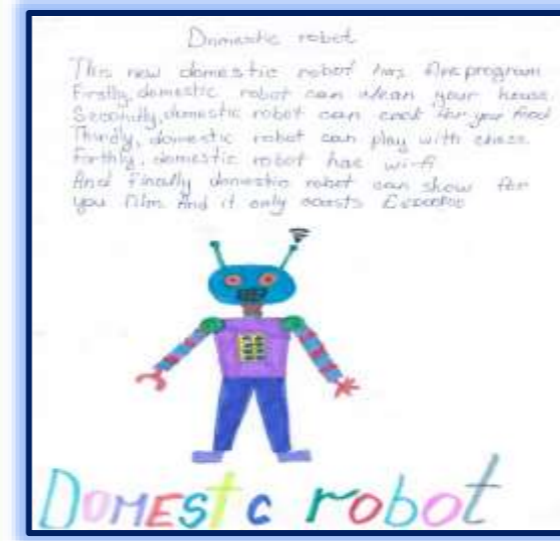 Domestic robot
This new domestic robot has five program
Firstly, domestic robot can clean your house.
Secondly, domestic robot can cook for your food
Thirdly, domestic robot can play with chess.
Forthly, domestic robot has wi-fi
And finally domestic robot can show for
you film And it only
DOMEStC robot